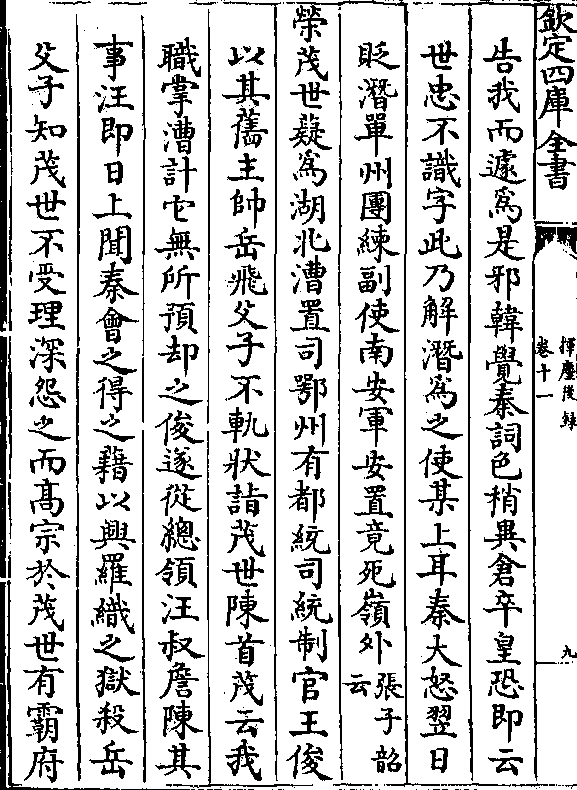 欽定四庫全書
揮麈後録
卷十一
九
告我而遽爲是邪韓覺秦詞色稍異倉卒皇恐即云
世忠不識字此乃解潛爲之使某上耳秦大怒翌日
貶潛單州團練副使南安軍安置竟死嶺外張子韶云
榮茂世薿爲湖北漕置司鄂州有都統司統制官王俊
以其舊主帥岳飛父子不軌狀詣茂世陳首茂云我
職掌漕計它無所預却之俊遂從總領汪叔詹陳其
事汪即日上聞秦會之得之藉以興羅織之獄殺岳
父子知茂世不受理深怨之而髙宗於茂世有霸府